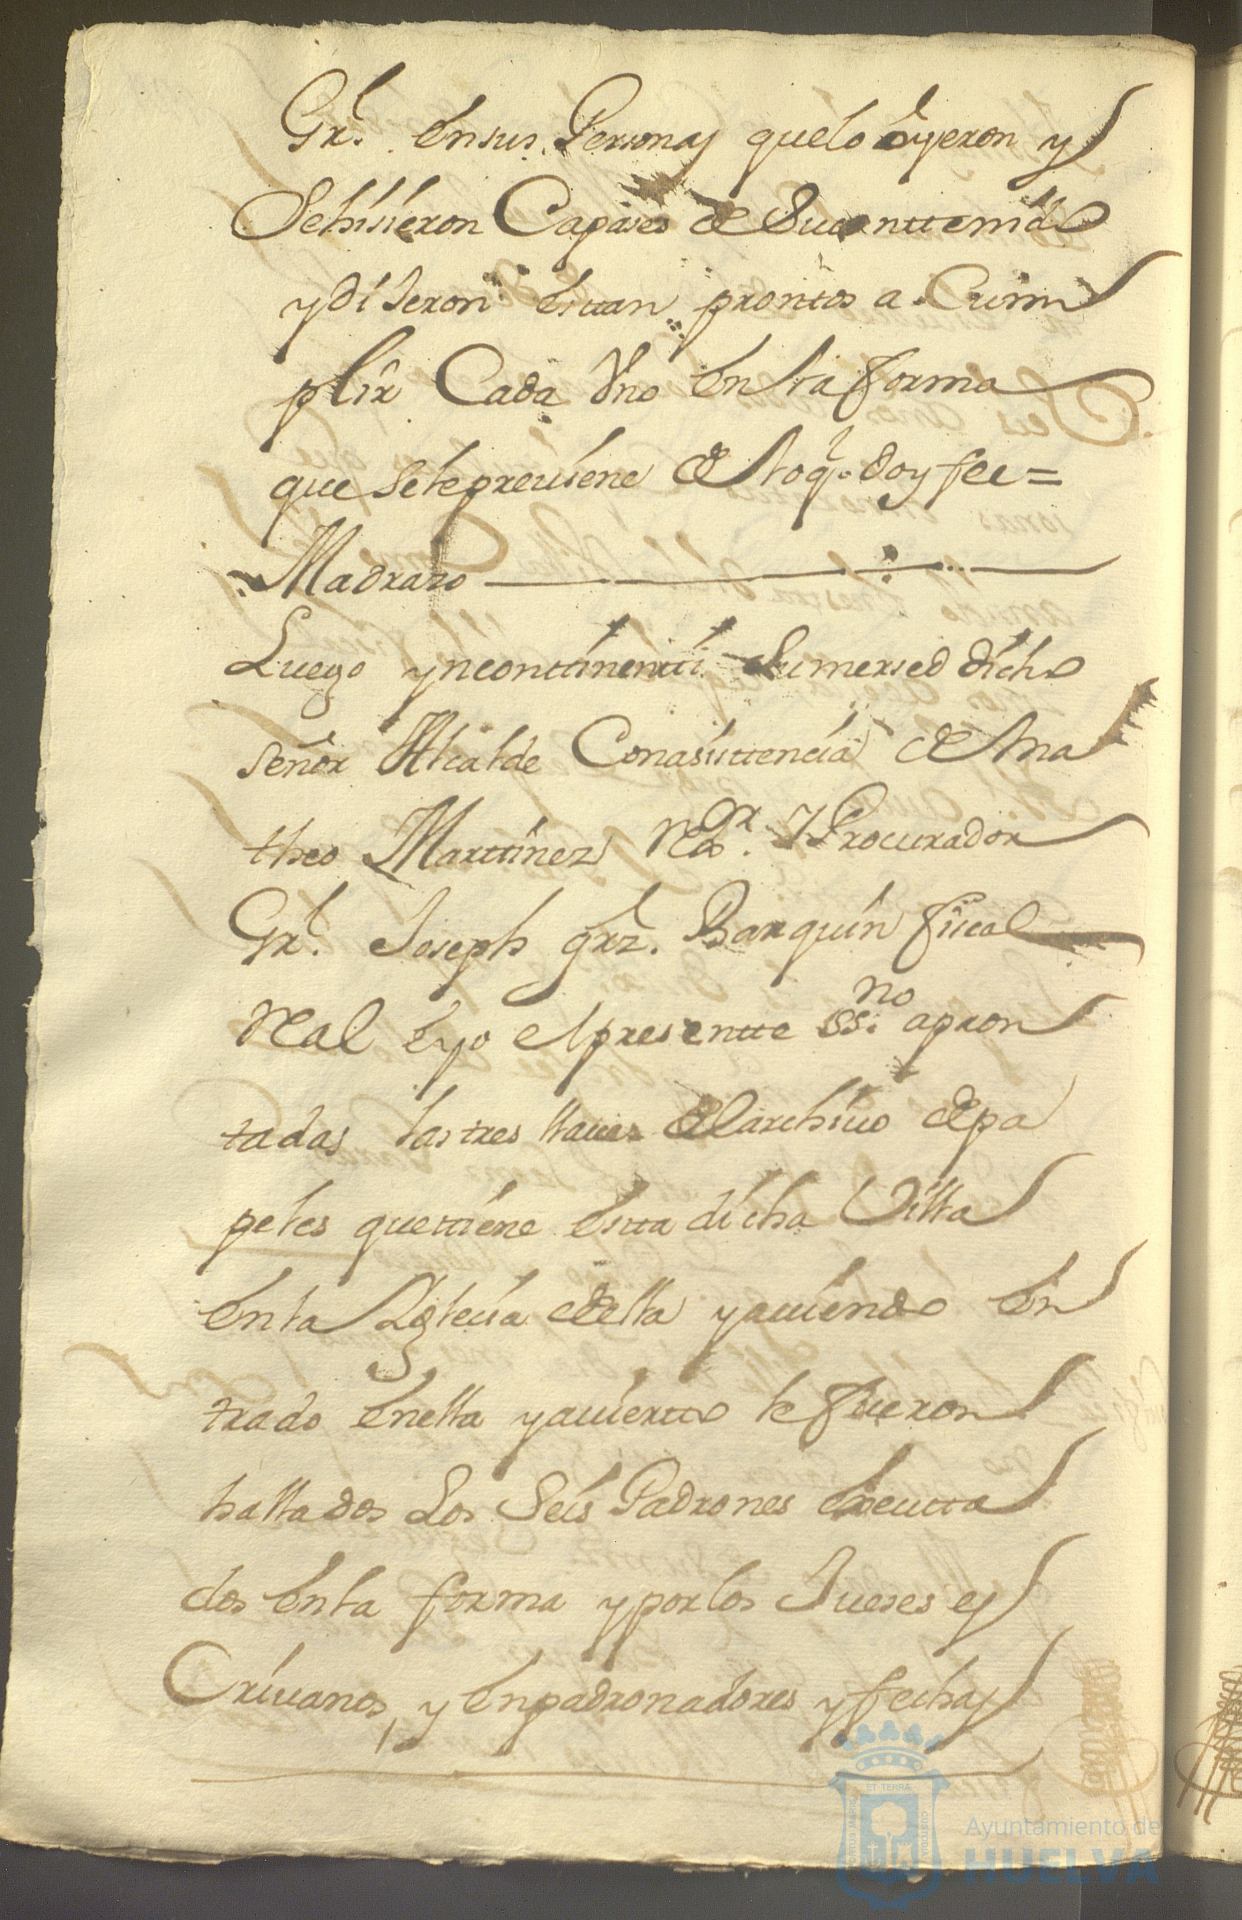 Grl. en sus Personas que lo oyeron y
Sehisieron Capases de Suconttenido
y dixeron esttan promtos a Cum
plir Cada Vno en la forma
que sele previene de lo q. doy fee=
Madrazo
Luego yncontinentti Sumersed dicho
señor Alcalde Conasisttencia de Ma
theo Marttinez Rdor. y Procurador
Grl. Joseph grz. Barquin fiscal
Real e yo el presentte ssno. apron
tadas las tres llaues del archiuo de pa
peles que ttiene estta dicha Villa
en la Yglecia della y auiendo en
trado en ella y auiertto le fueron
hallados Los Seis Padrones executta
dos en la forma y por los Jueses es
Criuanos, y enpadronadores y fechas
Ayuntamiento de
HUELVA